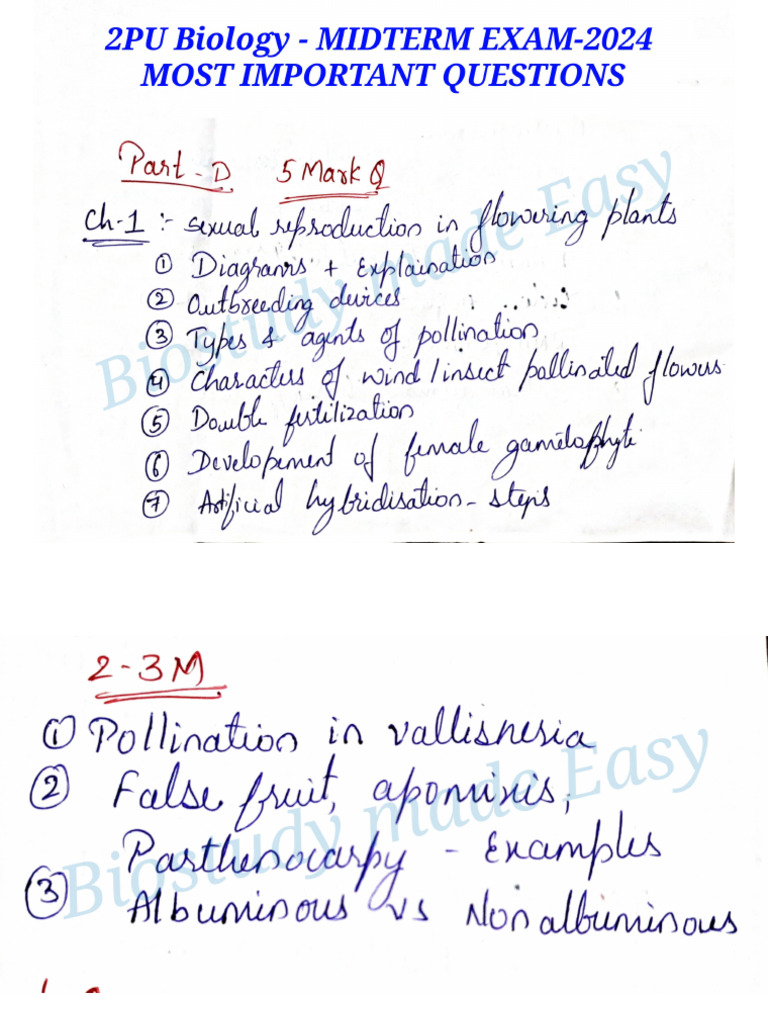 2PU Biology - MIDTERM EXAM-2024
MOST IMPORTANT QUESTIONS
Part-D 5 Mark Q
Ch-1 :- Sexual reproduction in flowering plants
① Diagrams + Explaination
② Outbreeding divices
③ Types & agents of pollination
④ Characters of wind/insect pollinated flowers
⑤ Double fertilization
⑥ Developement of female gametophyte.
⑦ Artificial hybridisation - steps
Biostudy made Easy
2-3M
① Pollination in vallisneria
② False fruit, apomixis,
Parthenocarpy - Examples
③ Albuminous vs Non albuminous
Biostudy made Easy